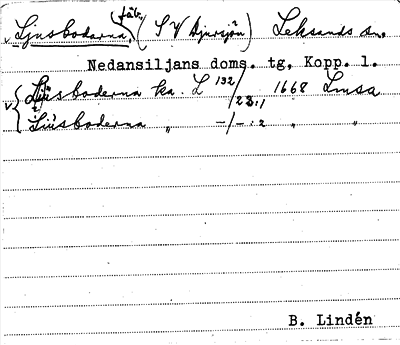 Ljusbodarna, fäb. (SV Djursjön) Leksands sn.
Nedansiljans doms. tg, Kopp. l.
Ljusbodarna ka. L 132/23:1 1668 Lmsa
Liusboderna „ -/-:2 „ „
B. Lindén